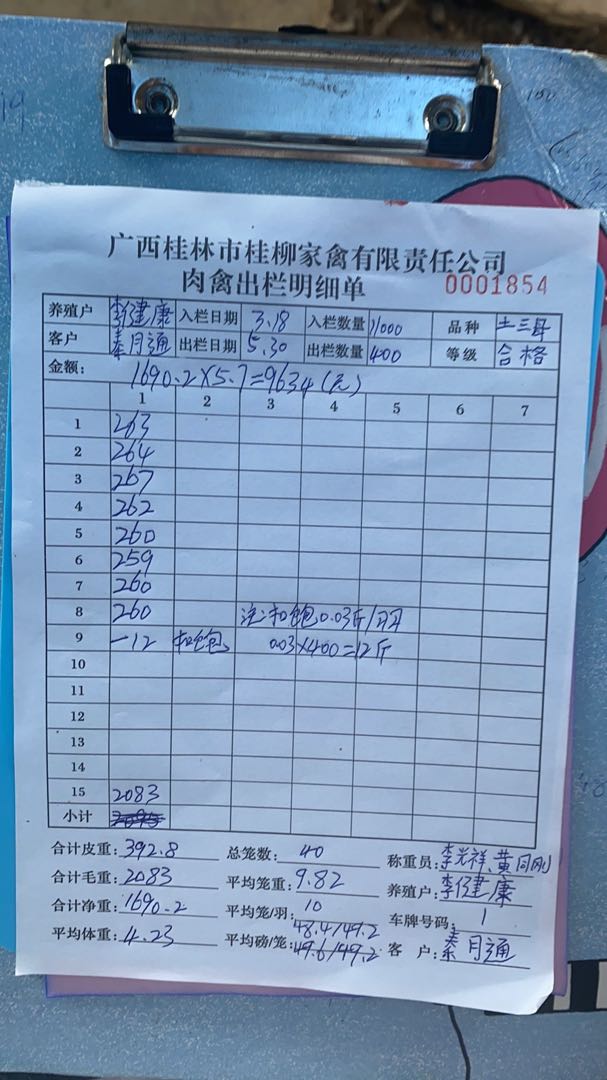 广西桂林市桂柳家禽有限责任公司
肉禽出栏明细单 0001854
养殖户 李健康 入栏日期 3.18 入栏数量 11000 品种 土三号
客户 秦月通 出栏日期 5.30 出栏数量 400 等级 合格
金额: 1690.2×5.7=9634(元)
1 2 3 4 5 6 7
1 263
2 264
3 267
4 262
5 260
6 259
7 260
8 260 注:扣饱0.03斤/羽
9 -12 扣饱 0.03×400=12斤
10
11
12
13
14
15 2083
小计 2095
合计皮重: 392.8 总笼数: 40 称重员: 李光祥 黄同刚
合计毛重: 2083 平均笼重: 9.82 养殖户: 李健康
合计净重: 1690.2 平均笼/羽: 10 车牌号码: 1
平均体重: 4.23 平均磅/笼: 48.4/49.2 49.6/49.2 客户: 秦月通